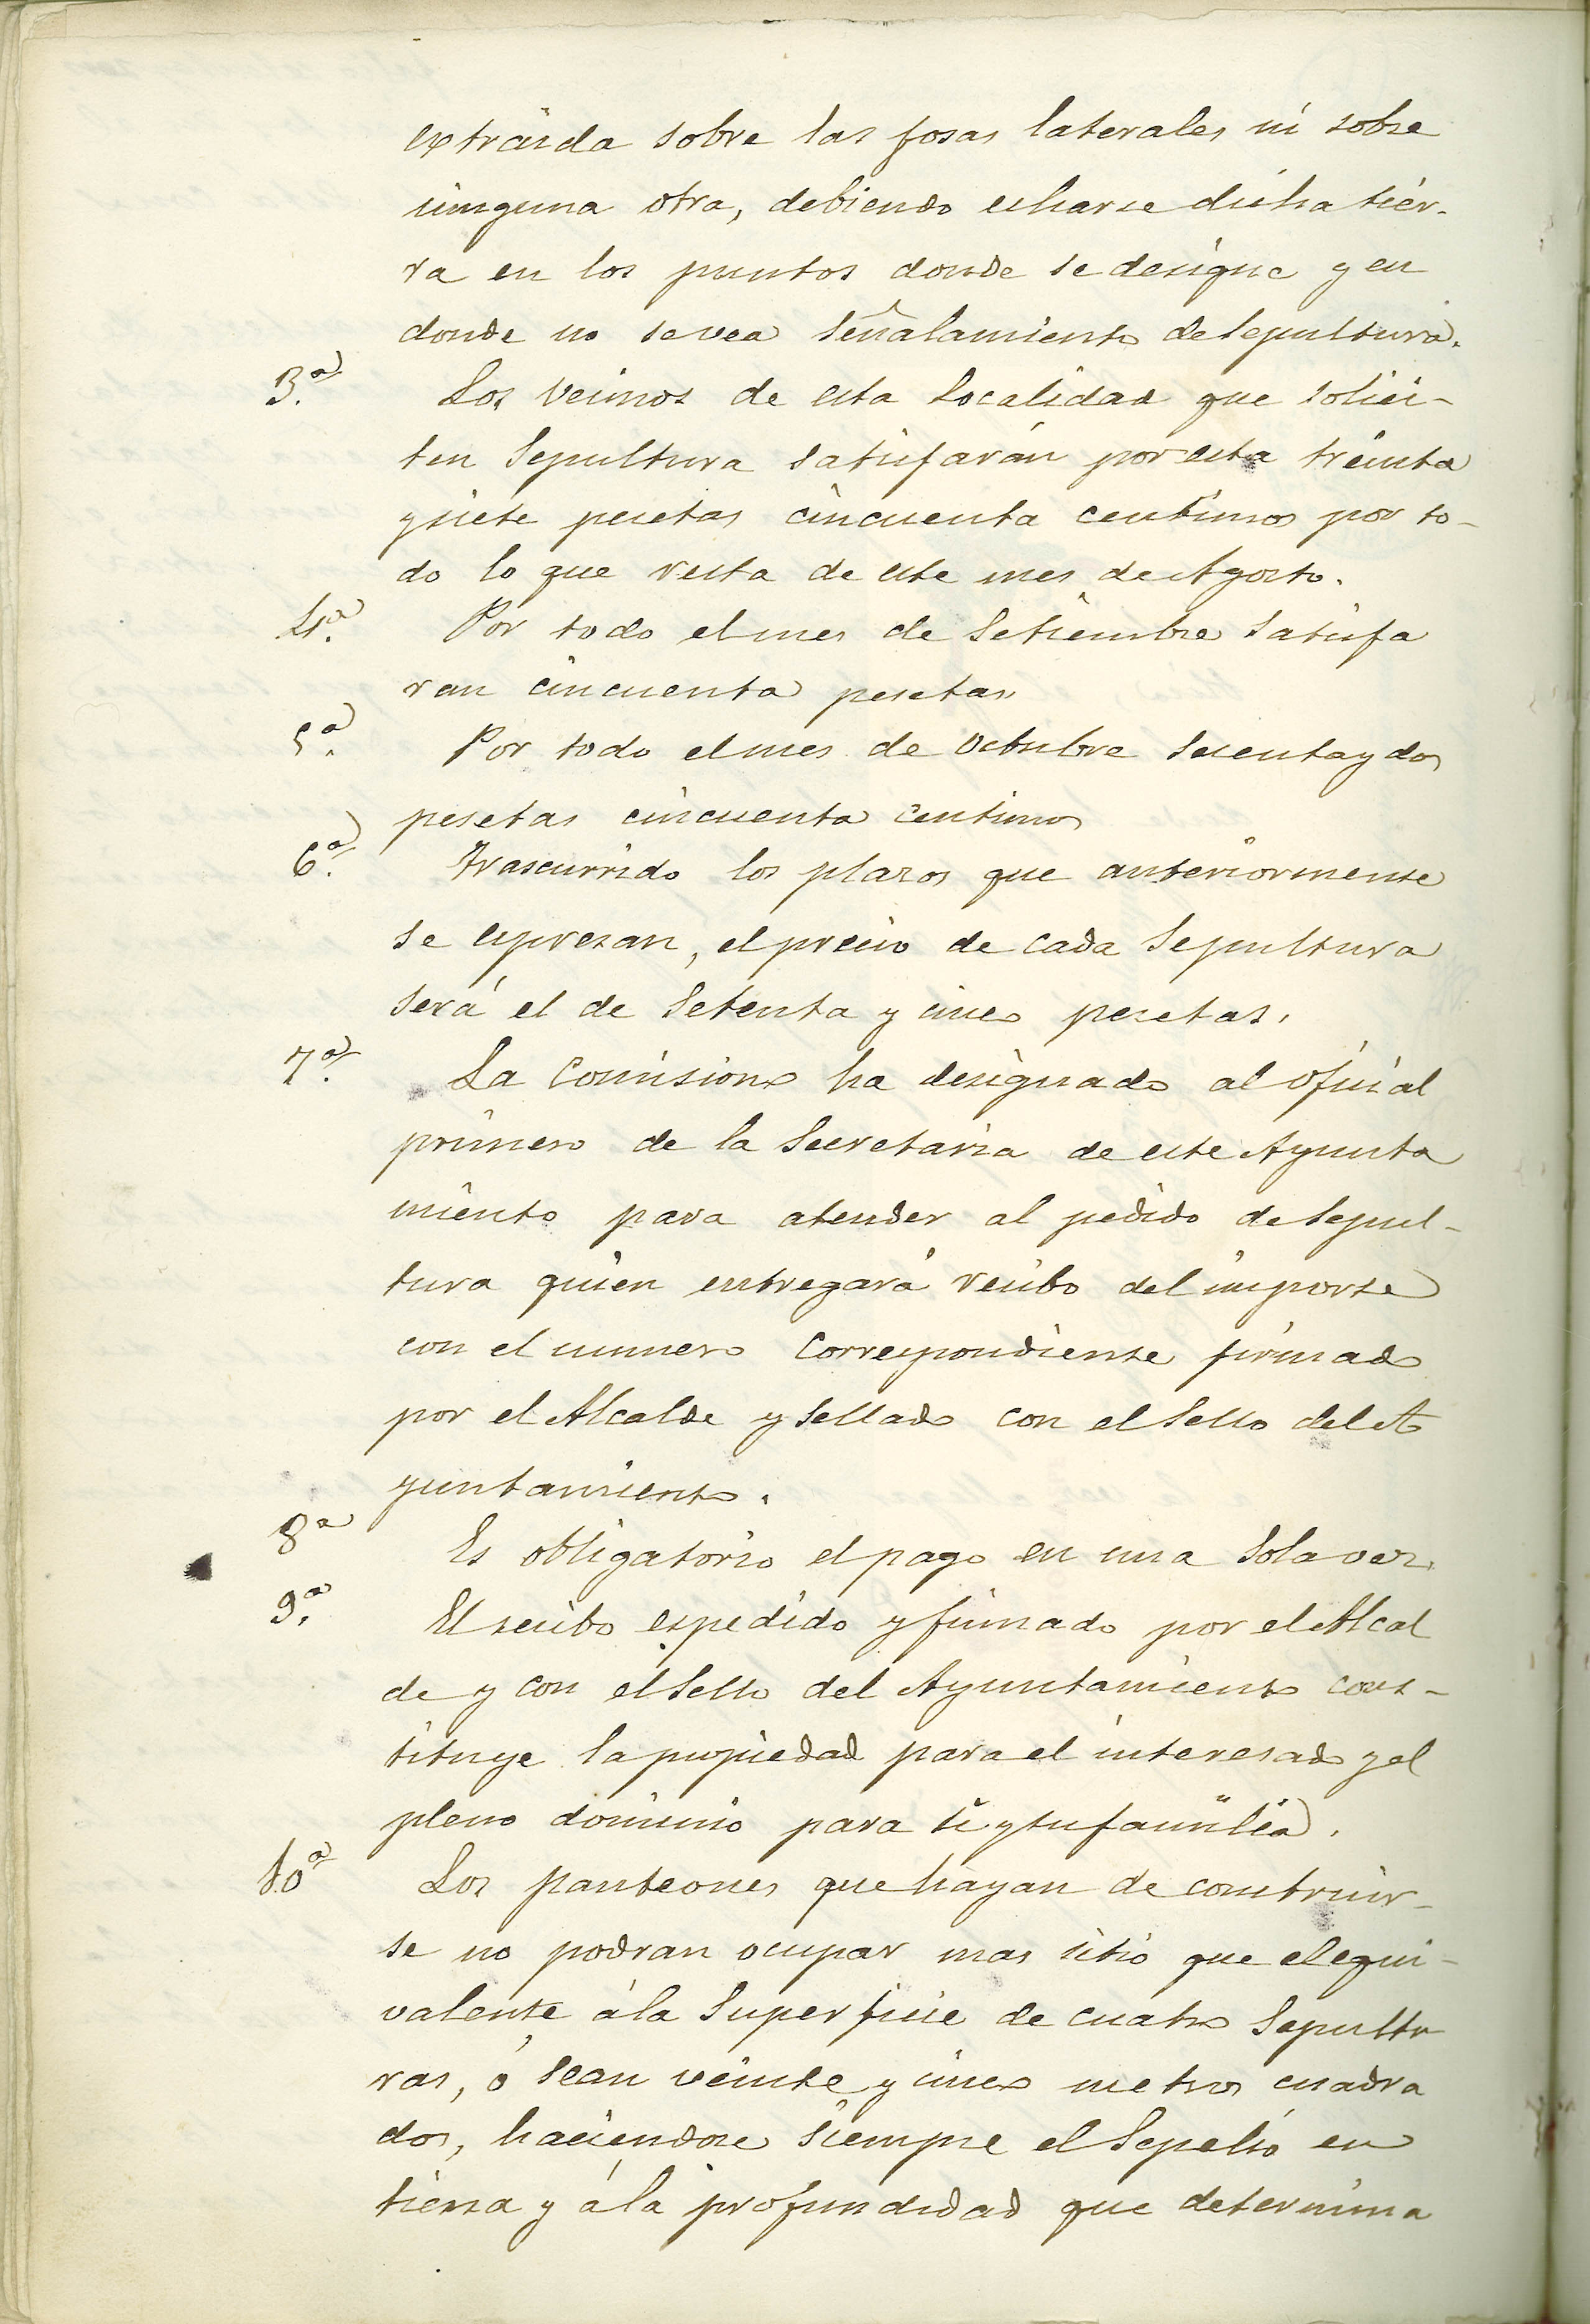 extraida sobre las fosas laterales ni sobre
ninguna otra, debiendo echarse dicha tier-
ra en los puntos donde se designe y en
donde no se vea señalamiento de Sepultura.
3.ª Los vecinos de esta Localidad que solici-
ten Sepultura satisfarán por esta treinta
y siete pesetas cincuenta centimos por to-
do lo que resta de este mes de Agosto.
4.ª Por todo el mes de Setiembre Satisfa
ran cincuenta pesetas
5.ª Por todo el mes de Octubre Sesenta y dos
pesetas cincuenta centimos
6.ª Trascurrido los plazos que anteriormente
se espresan, el precio de cada Sepultura
será el de Setenta y cinco pesetas.
7.ª La Comision ha designado al Oficial
primero de la Secretaria de este Ayunta
miento para atender al pedido de Sepul-
tura quien entregará recibo del importe
con el numero Correspondiente firmado
por el Alcalde y Sellado con el Sello del A
yuntamiento.
8ª Es obligatorio el pago en una Sola vez.
9.ª El recibo espedido y firmado por el Alcal
de y con el Sello del Ayuntamiento cons-
tituye la propiedad para el interesado y el
pleno dominio para si y su familia.
10ª Los panteones que hayan de construir-
se no podran ocupar mas sitio que el equi-
valente á la Superficie de cuatro Sepultu
ras, ó sean veinte y cinco metros cuadra
dos, haciendose Siempre el Sepelio en
tierra y á la profundidad que determina